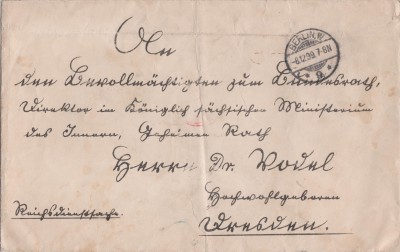 An
BERLIN W.
-8.12.99. 7-8N
den Bevollmächtigten zum Bundesrath,
Direktor im Königlich sächsischen Ministerium
des Innern, Geheimen Rath
Herrn Dr. Vodel
Hochwohlgeboren
Reichsdienstsache.
Dresden.